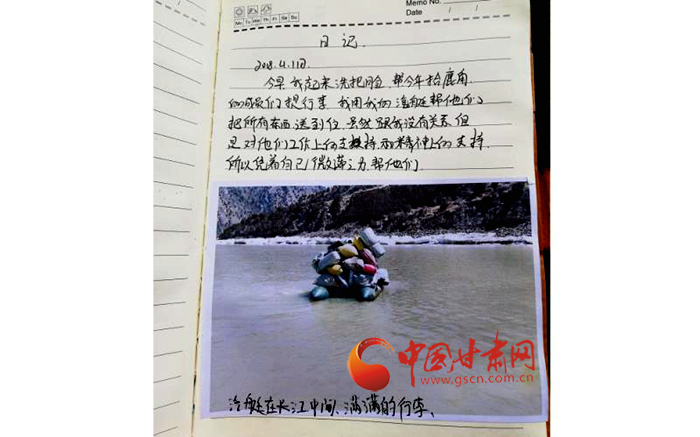 Memo No.
Mo Tu We Th Fr Sa Su
Date / /
日记.
2018.4.11日.
今早我起来洗把脸,帮今年拾鹿角
的朋友们提行李.我用我的汽艇帮他们
把所有东西送到位.虽然跟我没有关系.但
是对他们工作上的支持.和精神上的支持.
所以凭着自己微薄之力帮他们.
中国甘肃网
www.gscn.com.cn
汽艇在长江中间、满满的行李、